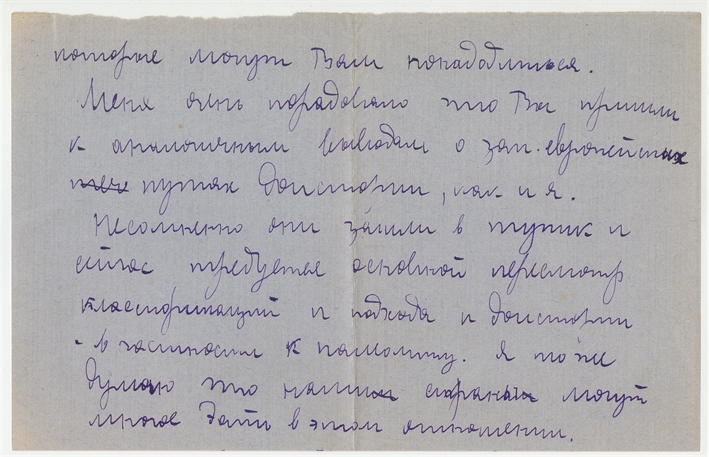 которые могут Вам понадобиться.
Меня очень порадовало что Вы пришли
к аналогичным выводам о зап. европейских
путях Доистории, как и я.
Несомненно они зашли в тупик и
сейчас требуется основной пересмотр
классификаций и подхода к Доистории
- в частности к палеолиту. Я тоже
думаю что наши страны могут
многое дать в этом отношении.